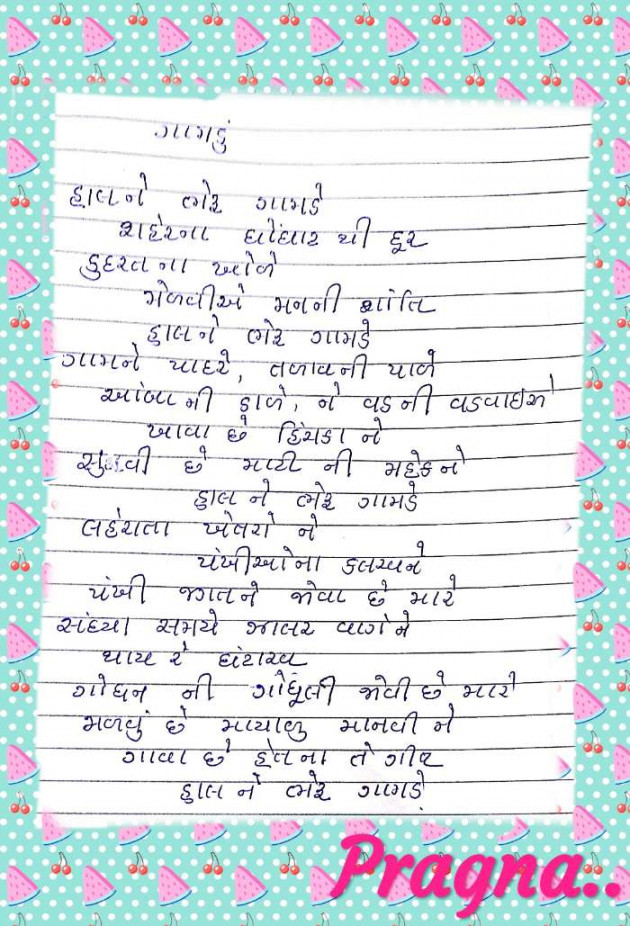 ગામડું
હાલ ને ભેરૂ ગામડે
શહેરના ઘોંઘાટ થી દૂર
કુદરત ના ખોળે
મેળવીએ મનની શાંતિ
હાલ ને ભેરૂ ગામડે
ગામને પાદરે, તળાવની પાળે
આંબા ની ડાળે, ને વડ ની વડવાઇએ
ખાવા છે હિંચકા ને
સુંઘવી છે માટી ની મહેકને
હાલ ને ભેરૂ ગામડે
લહેરાતા ખેતરો ને
પંખીઓના કલરવને
પંખી જગતને જોવા છે મારે
સંધ્યા સમયે ઝાલર વાગે ને
થાય રે ઘંટારવ
ગોધન ની ગોધૂલી જોવી છે મારે
મળવું છે માયાળુ માનવી ને
ગાવા છે હેતના તે ગીત
હાલ ને ભેરૂ ગામડે
Pragna..